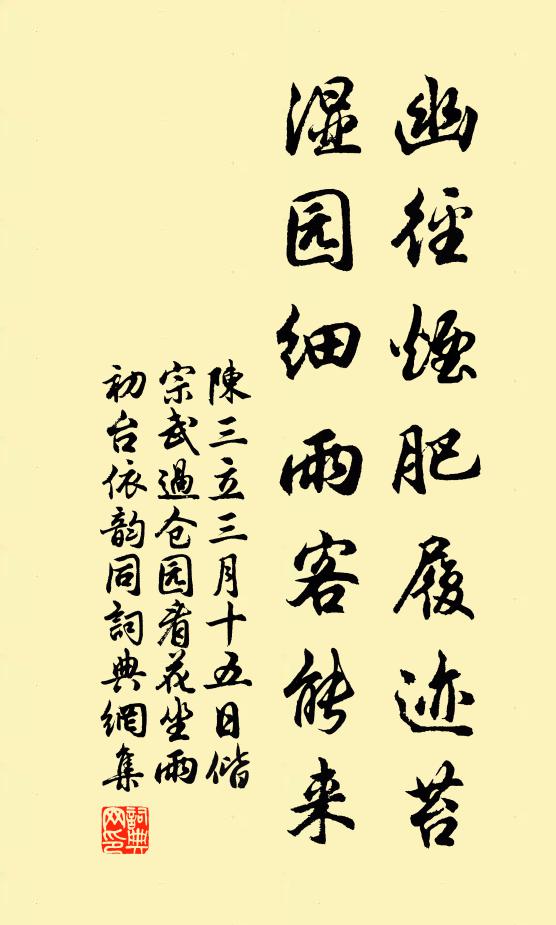 幽徑煙肥履迹苔
湿园细雨客能来
陳三立三月十五日偕
宗武過仓园看花坐雨
初台依韵同詞典網集
詞典
网印